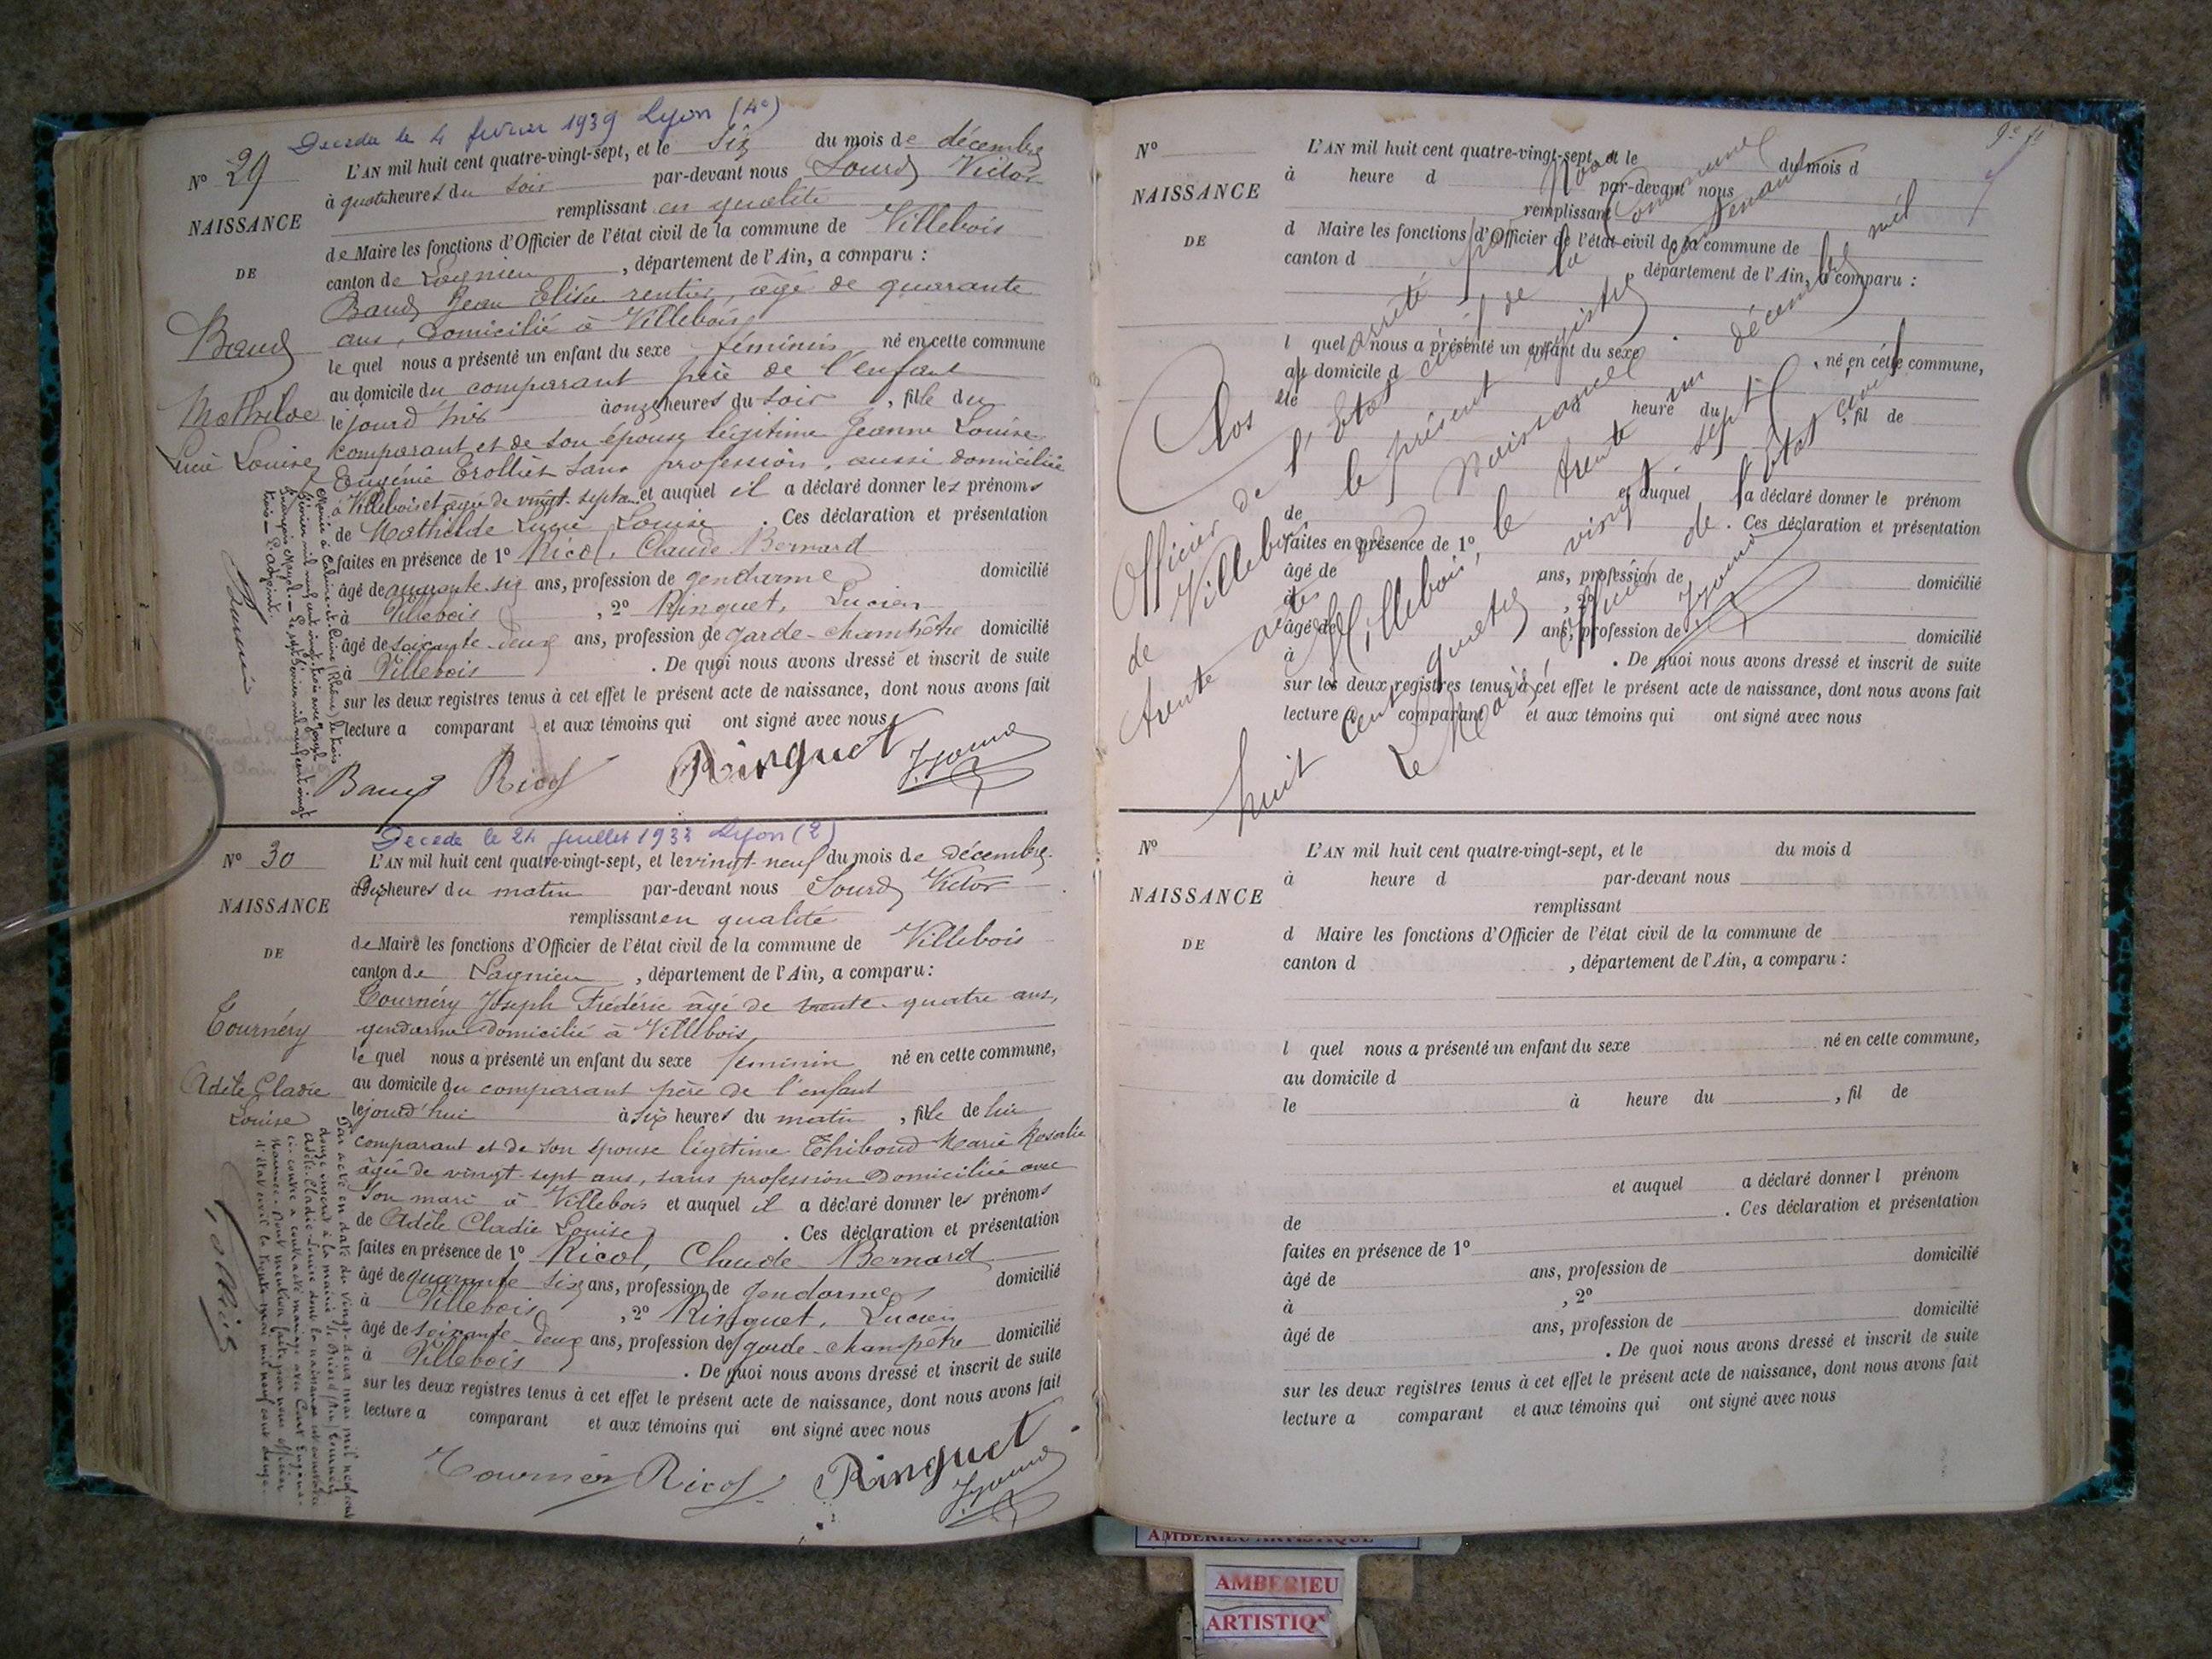 Décédée le 4 février 1939 Lyon (4e)
No 29
NAISSANCE
DE
Baud
Mathilde
Lucie Louise
L'AN mil huit cent quatre-vingt-sept, et le six du mois de décembre
à quatre heures du soir par-devant nous Sourd Victor
remplissant en qualité
de Maire les fonctions d'Officier de l'état civil de la commune de Villebois
canton de Lagnieu, département de l'Ain, a comparu :
Baud Jean Elisée rentier, âgé de quarante
ans, domicilié à Villebois
lequel nous a présenté un enfant du sexe féminin né en cette commune
au domicile du comparant père de l'enfant
le jourd'hier à onze heures du soir, fille du
comparant et de son épouse légitime Jeanne Louise
Eugénie Trolliet sans profession, aussi domiciliée
à Villebois et âgée de vingt-sept ans et auquel il a déclaré donner les prénoms
de Mathilde Lucie Louise. Ces déclaration et présentation
faites en présence de 1o Ricol, Claude Bernard
âgé de quarante-six ans, profession de gendarme domicilié
à Villebois, 2o Ringuet, Lucien
âgé de soixante-deux ans, profession de garde-champêtre domicilié
à Villebois. De quoi nous avons dressé et inscrit de suite
sur les deux registres tenus à cet effet le présent acte de naissance, dont nous avons fait
lecture a comparant et aux témoins qui ont signé avec nous
Baud Ricol Ringuet
Mariée à Caluire-et-Cuire (Rhône) le trois
février mil neuf cent vingt-trois avec Joseph
François
L'adjoint.
Décédé le 24 juillet 1933 Lyon (2)
No 30
NAISSANCE
DE
Tournéry
Adèle Cladie
Louise
L'AN mil huit cent quatre-vingt-sept, et le vingt-neuf du mois de décembre
à dix heures du matin par-devant nous Sourd Victor
remplissant en qualité
de Maire les fonctions d'Officier de l'état civil de la commune de Villebois
canton de Lagnieu, département de l'Ain, a comparu :
Tournéry Joseph Frédéric âgé de trente-quatre ans,
gendarme domicilié à Villebois
lequel nous a présenté un enfant du sexe féminin né en cette commune,
au domicile du comparant père de l'enfant
le jourd'hui à six heures du matin, fille de lui
comparant et de son épouse légitime Thiboud Marie Rosalie
âgée de vingt-sept ans, sans profession domiciliée avec
son mari à Villebois et auquel il a déclaré donner les prénoms
de Adèle Cladie Louise. Ces déclaration et présentation
faites en présence de 1o Ricol, Claude Bernard
âgé de quarante six ans, profession de gendarme domicilié
à Villebois, 2o Ringuet, Lucien
âgé de soixante-deux ans, profession de garde-champêtre domicilié
à Villebois. De quoi nous avons dressé et inscrit de suite
sur les deux registres tenus à cet effet le présent acte de naissance, dont nous avons fait
lecture a comparant et aux témoins qui ont signé avec nous
Tournéry Ricol Ringuet
Par acte en date du vingt-deux mai mil neuf cent
douze inscrit à la mairie de
Adèle-Cladie-Louise dont la naissance est constatée
ci-contre a contracté mariage avec
Dont mention faite par nous officier
d'état civil le trente mai mil neuf cent douze.
No
NAISSANCE
DE
L'AN mil huit cent quatre-vingt-sept, et le du mois d
à heure d par-devant nous
remplissant
d Maire les fonctions d'Officier de l'état civil de la commune de
canton d département de l'Ain, a comparu :
l quel nous a présenté un enfant du sexe né en cette commune,
au domicile d
le à heure du , fil de
et auquel a déclaré donner le prénom
de . Ces déclaration et présentation
faites en présence de 1o
âgé de ans, profession de domicilié
à , 2o
âgé de ans, profession de domicilié
à . De quoi nous avons dressé et inscrit de suite
sur les deux registres tenus à cet effet le présent acte de naissance, dont nous avons fait
lecture a comparant et aux témoins qui ont signé avec nous
Clos et arrêté par Nous
Officier de l'Etat civil de la Commune
de Villebois le présent registre contenant
trente actes de Naissances.
Villebois, le trente un décembre mil
huit cent quatre vingt-sept
Le Maire, officier de l'état civil
No
NAISSANCE
DE
L'AN mil huit cent quatre-vingt-sept, et le du mois d
à heure d par-devant nous
remplissant
d Maire les fonctions d'Officier de l'état civil de la commune de
canton d , département de l'Ain, a comparu :
l quel nous a présenté un enfant du sexe né en cette commune,
au domicile d
le à heure du , fil de
et auquel a déclaré donner l prénom
de . Ces déclaration et présentation
faites en présence de 1o
âgé de ans, profession de domicilié
à , 2o
âgé de ans, profession de domicilié
. De quoi nous avons dressé et inscrit de suite
sur les deux registres tenus à cet effet le présent acte de naissance, dont nous avons fait
lecture a comparant et aux témoins qui ont signé avec nous
AMBERIEU ARTISTIQUE
AMBERIEU
ARTISTIQ